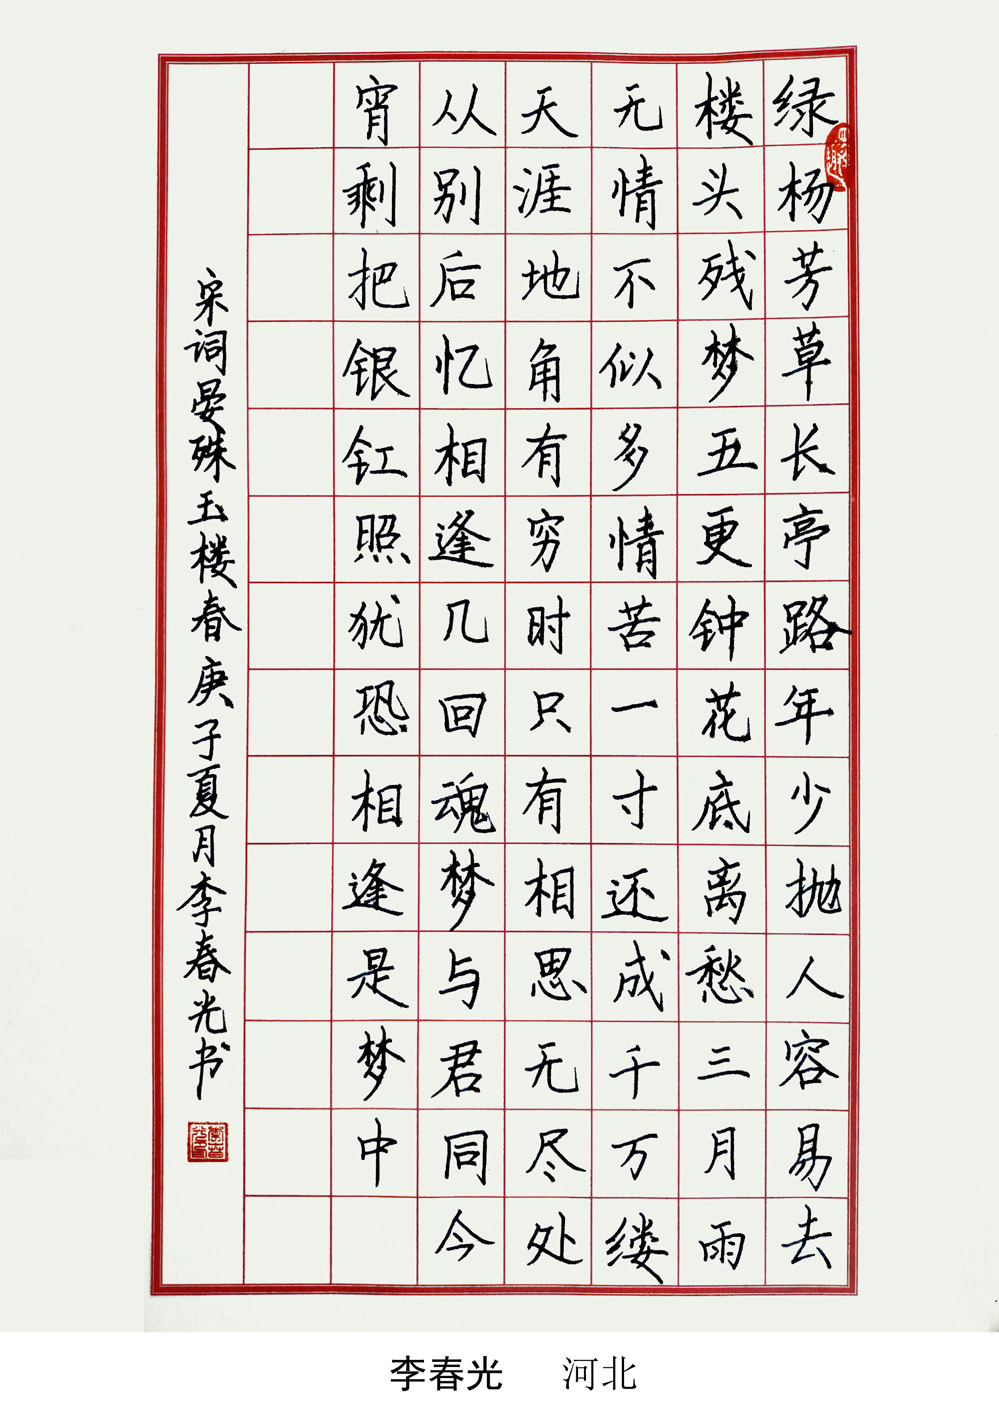 绿杨芳草长亭路年少抛人容易去
楼头残梦五更钟花底离愁三月雨
无情不似多情苦一寸还成千万缕
天涯地角有穷时只有相思无尽处
从别后忆相逢几回魂梦与君同今
宵剩把银釭照犹恐相逢是梦中
宋词晏殊玉楼春庚子夏月李春光书
李春光 河北